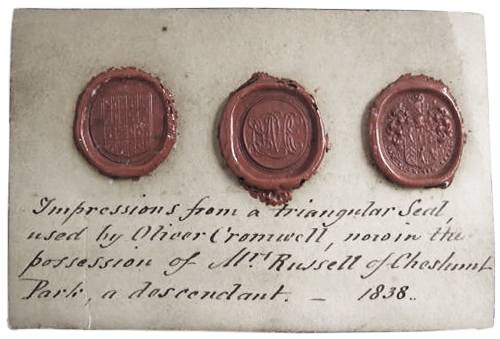 Impressions from a triangular Seal,
used by Oliver Cromwell, now in the
possession of Mrs Russell of Cheshunt
Park, a descendant. — 1838.